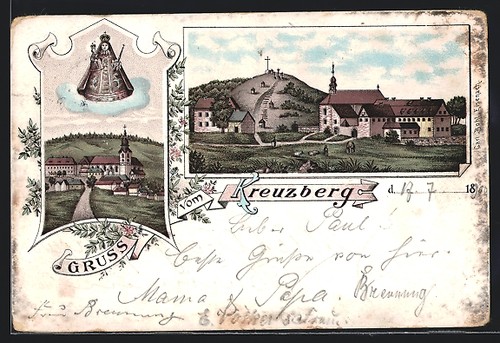 GRUSS
vom
Kreuzberg
d. 17 7 18
Lieber Paul!
Beste Grüße von hier.
Mama & Papa. Brennung
Frau Brennung